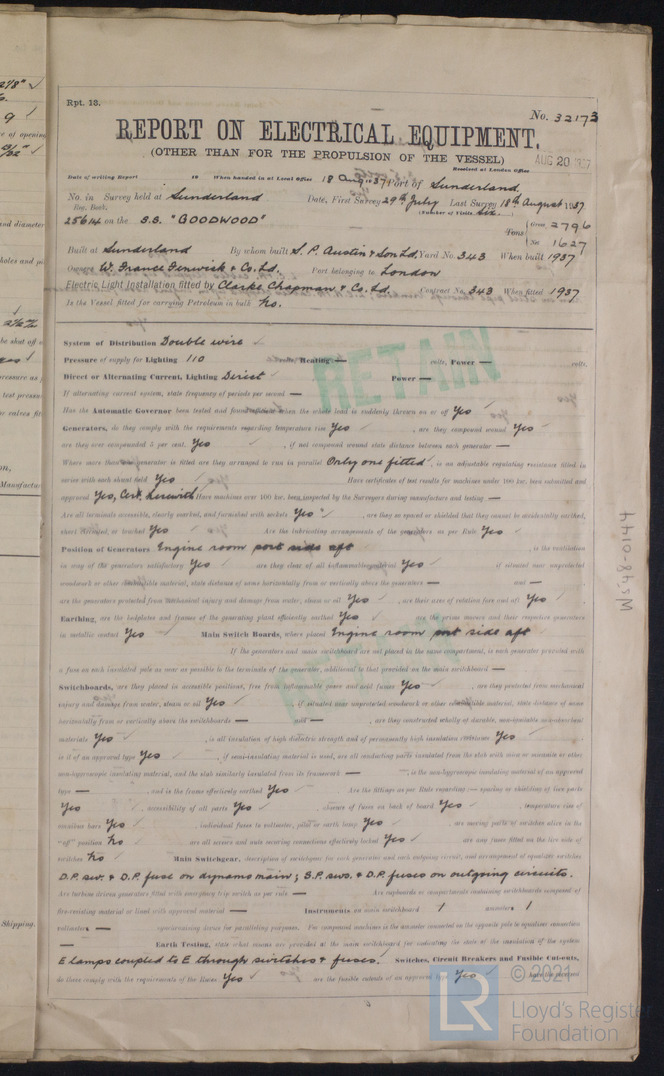 Rpt. 13.
No. 32173
REPORT ON ELECTRICAL EQUIPMENT.
(OTHER THAN FOR THE PROPULSION OF THE VESSEL)
AUG 20 1937
Received at London Office
Date of writing Report 19 When handed in at Local Office 18 Aug. 37 Port of Sunderland
No. in Survey held at Sunderland Date, First Survey 29th July Last Survey 18th August 1937
Reg. Book. (Number of Visits six)
25614 on the S.S. "GOODWOOD" Tons Gross 2796
Net 1627
Built at Sunderland By whom built S. P. Austin & Son Ld. Yard No. 343 When built 1937
Owners W. France Fenwick & Co. Ld. Port belonging to London
Electric Light Installation fitted by Clarke Chapman & Co. Ld. Contract No. 343 When fitted 1937
Is the Vessel fitted for carrying Petroleum in bulk No.
System of Distribution Double wire
Pressure of supply for Lighting 110 volts, Heating — volts, Power — volts.
Direct or Alternating Current, Lighting Direct Power —
If alternating current system, state frequency of periods per second —
Has the Automatic Governor been tested and found efficient when the whole load is suddenly thrown on or off Yes
Generators, do they comply with the requirements regarding temperature rise Yes , are they compound wound Yes
are they over compounded 5 per cent. Yes , if not compound wound state distance between each generator —
Where more than one generator is fitted are they arranged to run in parallel Only one fitted , is an adjustable regulating resistance fitted in
series with each shunt field Yes Have certificates of test results for machines under 100 kw. been submitted and
approved Yes, Cert. herewith Have machines over 100 kw. been inspected by the Surveyors during manufacture and testing —
Are all terminals accessible, clearly marked, and furnished with sockets Yes , are they so spaced or shielded that they cannot be accidentally earthed,
short circuited, or touched Yes Are the lubricating arrangements of the generators as per Rule Yes
Position of Generators Engine room port side aft , is the ventilation
in way of the generators satisfactory Yes are they clear of all inflammable material Yes , if situated near unprotected
woodwork or other combustible material, state distance of same horizontally from or vertically above the generators — and —
are the generators protected from mechanical injury and damage from water, steam or oil Yes , are their axes of rotation fore and aft Yes
Earthing, are the bedplates and frames of the generating plant efficiently earthed Yes are the prime movers and their respective generators
in metallic contact Yes Main Switch Boards, where placed Engine room port side aft
If the generators and main switchboard are not placed in the same compartment, is each generator provided with
a fuse on each insulated pole as near as possible to the terminals of the generator, additional to that provided on the main switchboard —
Switchboards, are they placed in accessible positions, free from inflammable gases and acid fumes Yes , are they protected from mechanical
injury and damage from water, steam or oil Yes , if situated near unprotected woodwork or other combustible material, state distance of same
horizontally from or vertically above the switchboards — and — , are they constructed wholly of durable, non-ignitable non-absorbent
materials Yes , is all insulation of high dielectric strength and of permanently high insulation resistance Yes
is it of an approved type Yes , if semi-insulating material is used, are all conducting parts insulated from the slab with mica or micanite or other
non-hygroscopic insulating material, and the slab similarly insulated from its framework — , is the non-hygroscopic insulating material of an approved
type — , and is the frame effectively earthed Yes Are the fittings as per Rule regarding:— spacing or shielding of live parts
Yes , accessibility of all parts Yes , absence of fuses on back of board Yes , temperature rise of
omnibus bars Yes , individual fuses to voltmeter, pilot or earth lamp Yes , are moving parts of switches alive in the
"off" position No are all screws and nuts securing connections effectively locked Yes are any fuses fitted on the live side of
switches No Main Switchgear, description of switchgear for each generator and each outgoing circuit, and arrangement of equaliser switches
D.P. sw. & D.P. fuse on dynamo main; S.P. sws. & D.P. fuses on outgoing circuits.
Are turbine driven generators fitted with emergency trip switch as per rule — Are cupboards or compartments containing switchboards composed of
fire-resisting material or lined with approved material — Instruments on main switchboard 1 ammeters 1
voltmeters — synchronising device for paralleling purposes. For compound machines is the ammeter connected on the opposite pole to equaliser connection
— Earth Testing, state what means are provided at the main switchboard for indicating the state of the insulation of the system
E lamps coupled to E through switches & fuses. Switches, Circuit Breakers and Fusible Cut-outs,
do these comply with the requirements of the Rules Yes are the fusible cutouts of an approved type Yes have the reversed
RETAIN
RETAIN
W548-0144
Shipping.
Manufactur
LR
© 2021
Lloyd's Register
Foundation